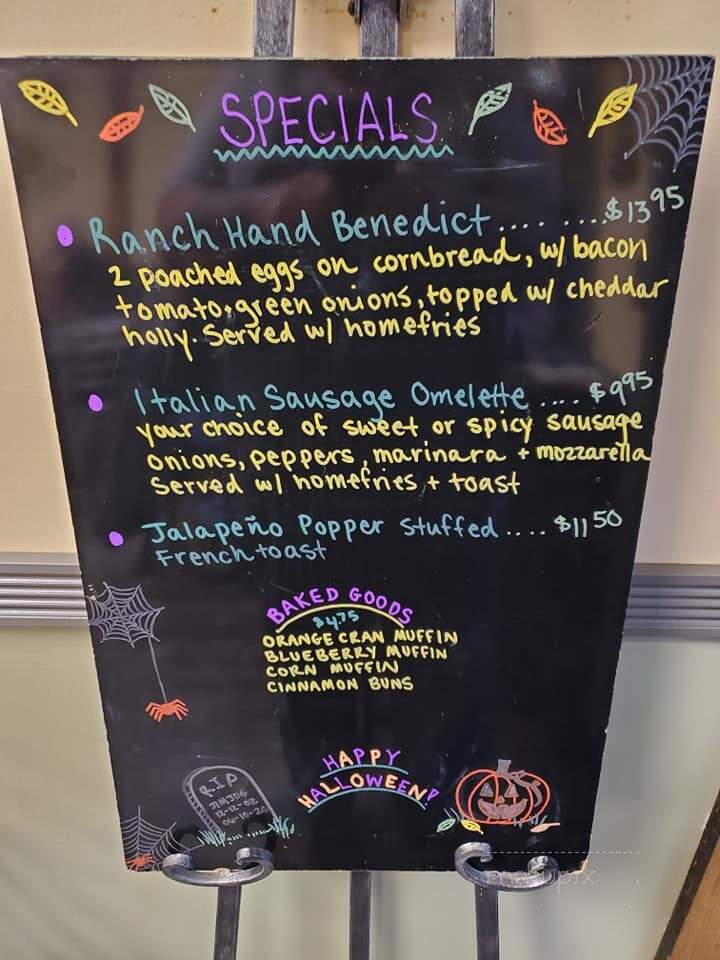 SPECIALS
Ranch Hand Benedict.... ....$13.95
2 poached eggs on cornbread, w/ bacon
tomato, green onions, topped w/ cheddar
holly. Served w/ homefries
Italian Sausage Omelette .... $9.95
your choice of sweet or spicy sausage
onions, peppers, marinara + mozzarella
Served w/ homefries + toast
Jalapeño Popper Stuffed.... $11.50
French toast
BAKED GOODS
$4.75
ORANGE CRAN MUFFIN
BLUEBERRY MUFFIN
CORN MUFFIN
CINNAMON BUNS
HAPPY
HALLOWEEN!
R.I.P
12-12-02